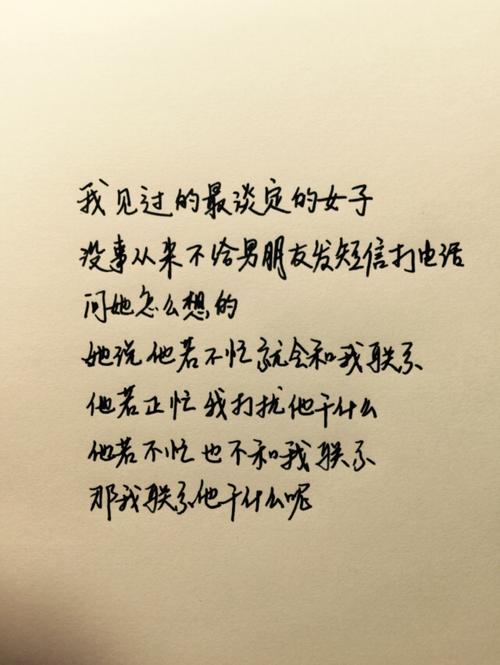 我见过的最淡定的女子
没事从来不给男朋友发短信打电话
问她怎么想的
她说他若不忙就会和我联系
他若正忙我打扰他干什么
他若不忙也不和我联系
那我联系他干什么呢